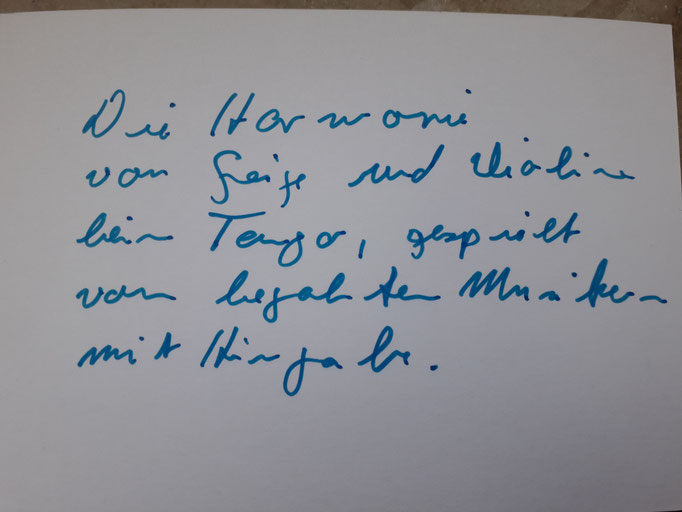 Die Harmonie
von Geige und Violine
beim Tango, gespielt
von begabten Musikern
mit Hingabe.